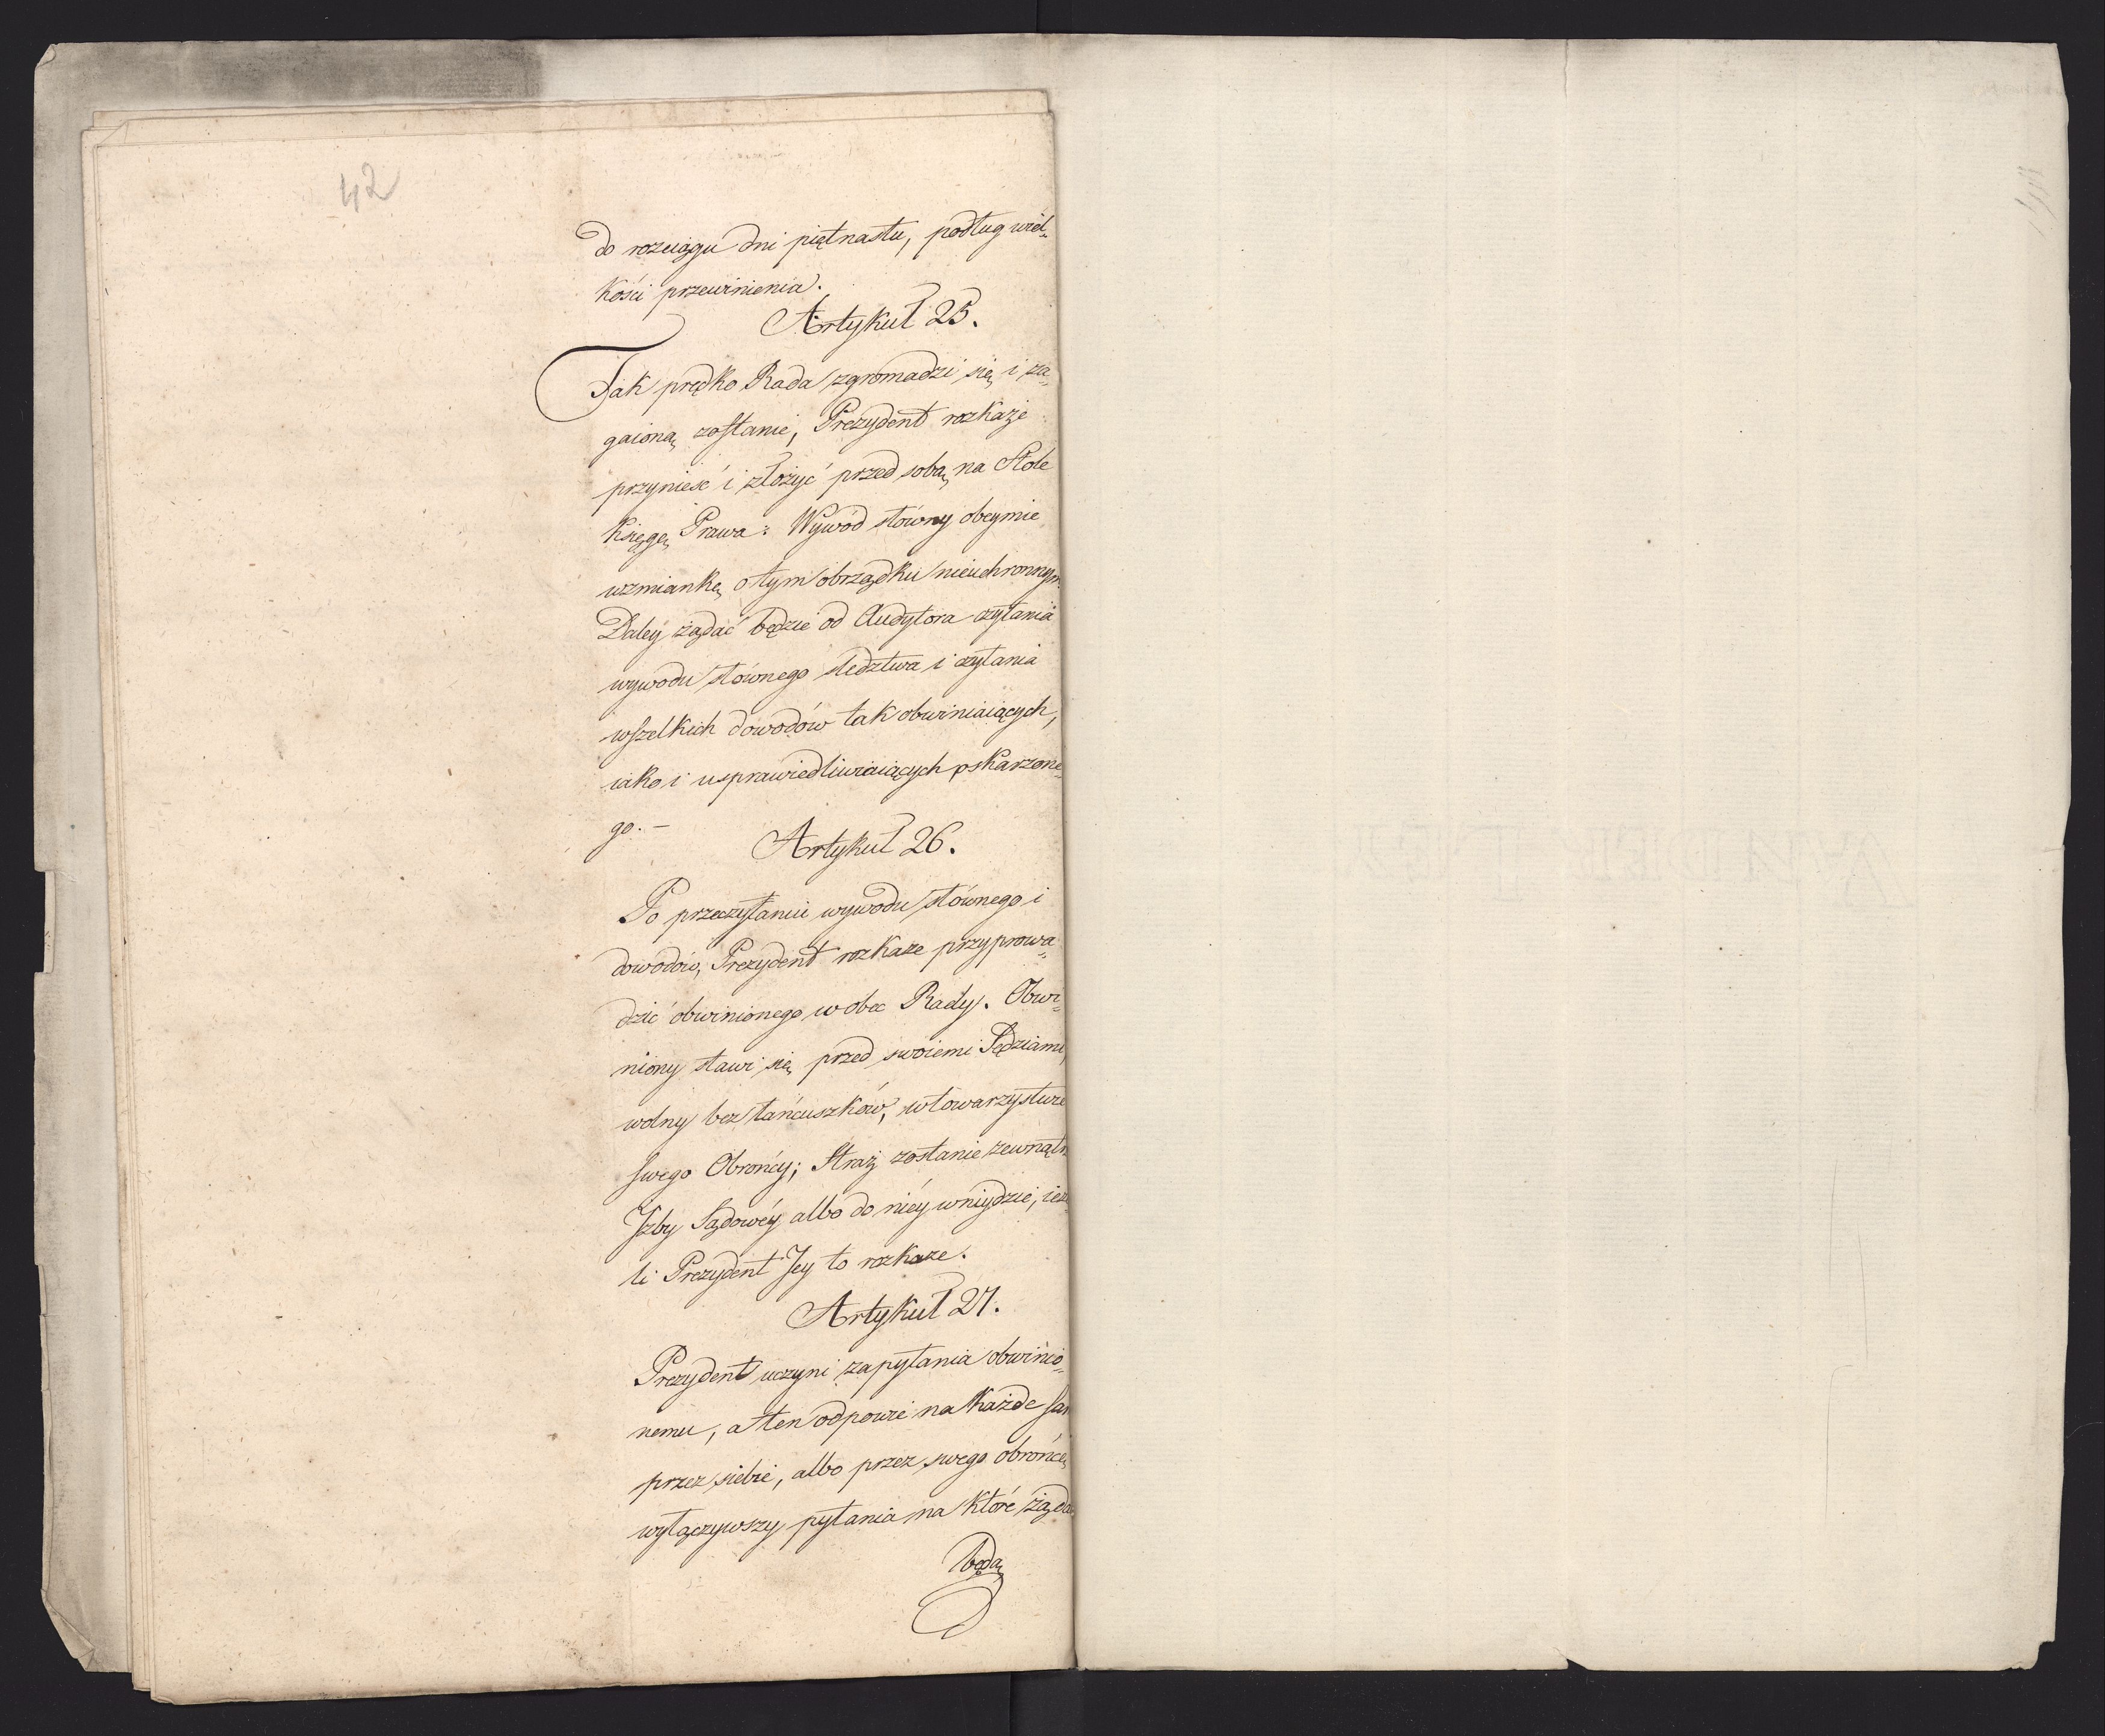 42
do rozciągu dni piętnastu, podług wiel„
kości przewinienia.
Artykuł 25.
Jak prędko Rada zgromadzi się i za„
gaioną zostanie, Prezydent rozkaże
przynieść i złożyć przed sobą na Stole
Księgę Prawa: Wywód słówny obeymie
wzmiankę o tym obrządku nieuchronnym.
Daley żądać będzie od Audytora czytania
wywodu słównego sledztwa i czytania
wszelkich dowodów tak obwiniaiących,
iako i usprawiedliwiaiących oskarzone„
go. —
Artykuł 26.
Po przeczytaniu wywodu słównego i
dowodów, Prezydent rozkaze przyprowa„
dzić obwinionego w obec Rady. Obwi„
niony stawi się przed swoiemi Sędziami,
wolny bez łańcuszków, w towarzystwie
swego Obrońcy; Straż zostanie zewnątrz
Jzby Sądowéy albo do niéy wniydzie, ieże„
li Prezydent Jey to rozkaze.
Artykuł 27.
Prezydent uczyni zapytania obwinio„
nemu, a ten odpowie na każde sam
przez siebie, albo przez swego obrońcę,
wyłączywszy pytania na które żąda
będą